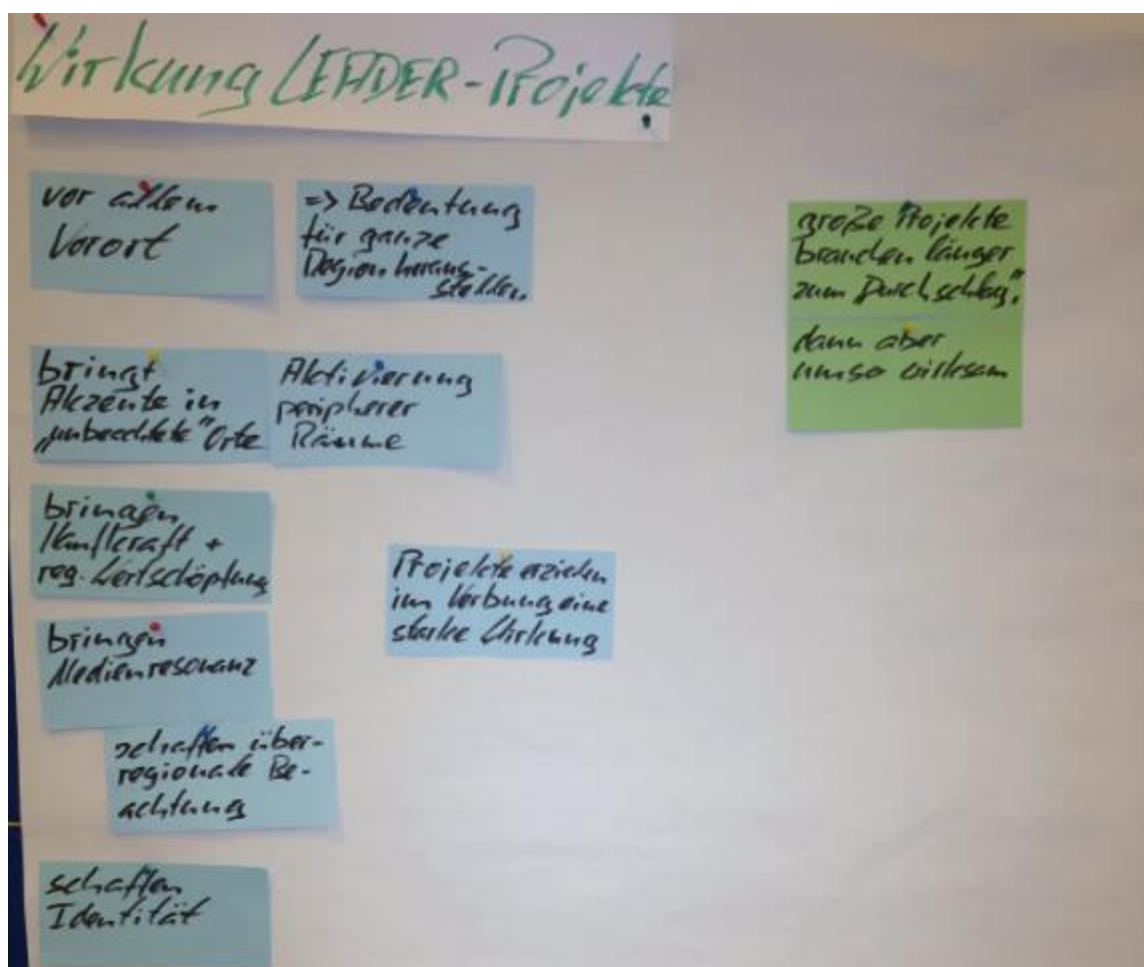 Wirkung LEADER-Projekte
vor allem
Vorort
=> Bedeutung
für ganze
Region heraus-
stellen
bringt
Akzente in
„unbeachtete" Orte
Aktivierung
peripherer
Räume
bringen
Kaufkraft +
reg. Wertschöpfung
bringen
Medienresonanz
Projekte erzielen
im Verbung eine
starke Wirkung
schaffen über-
regionale Be-
achtung
schaffen
Identität
große Projekte
brauchen länger
zum Durchschlag.
dann aber
umso wirksam